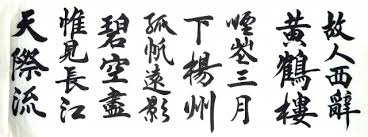 故人西辭
黃鶴樓
煙花三月
下楊州
孤帆遠影
碧空盡
惟見長江
天際流